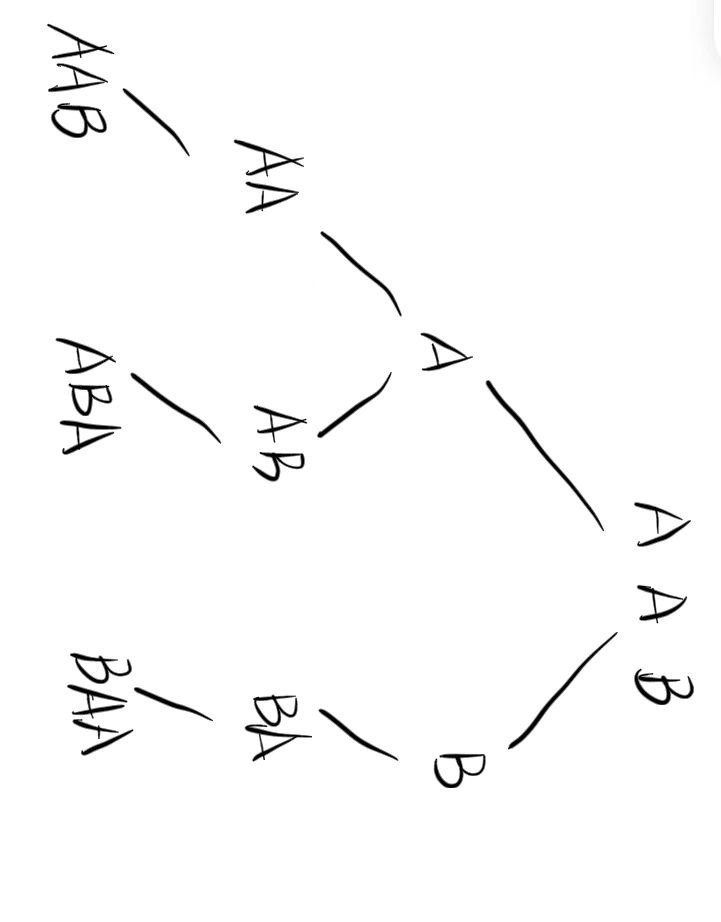 A A B
A B
AA AB BA
AAB ABA BAA